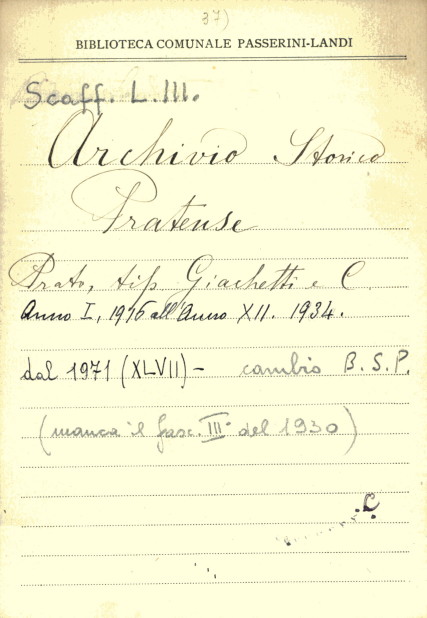 37)
BIBLIOTECA COMUNALE PASSERINI-LANDI
Scaff. L. III.
Archivio Storico
Pratense
Prato, tip. Giachetti e C.
Anno I, 1916 all'Anno XII. 1934.
dal 1971 (XLVII) - cambio B. S. P.
(manca il fasc. III° del 1930)
L